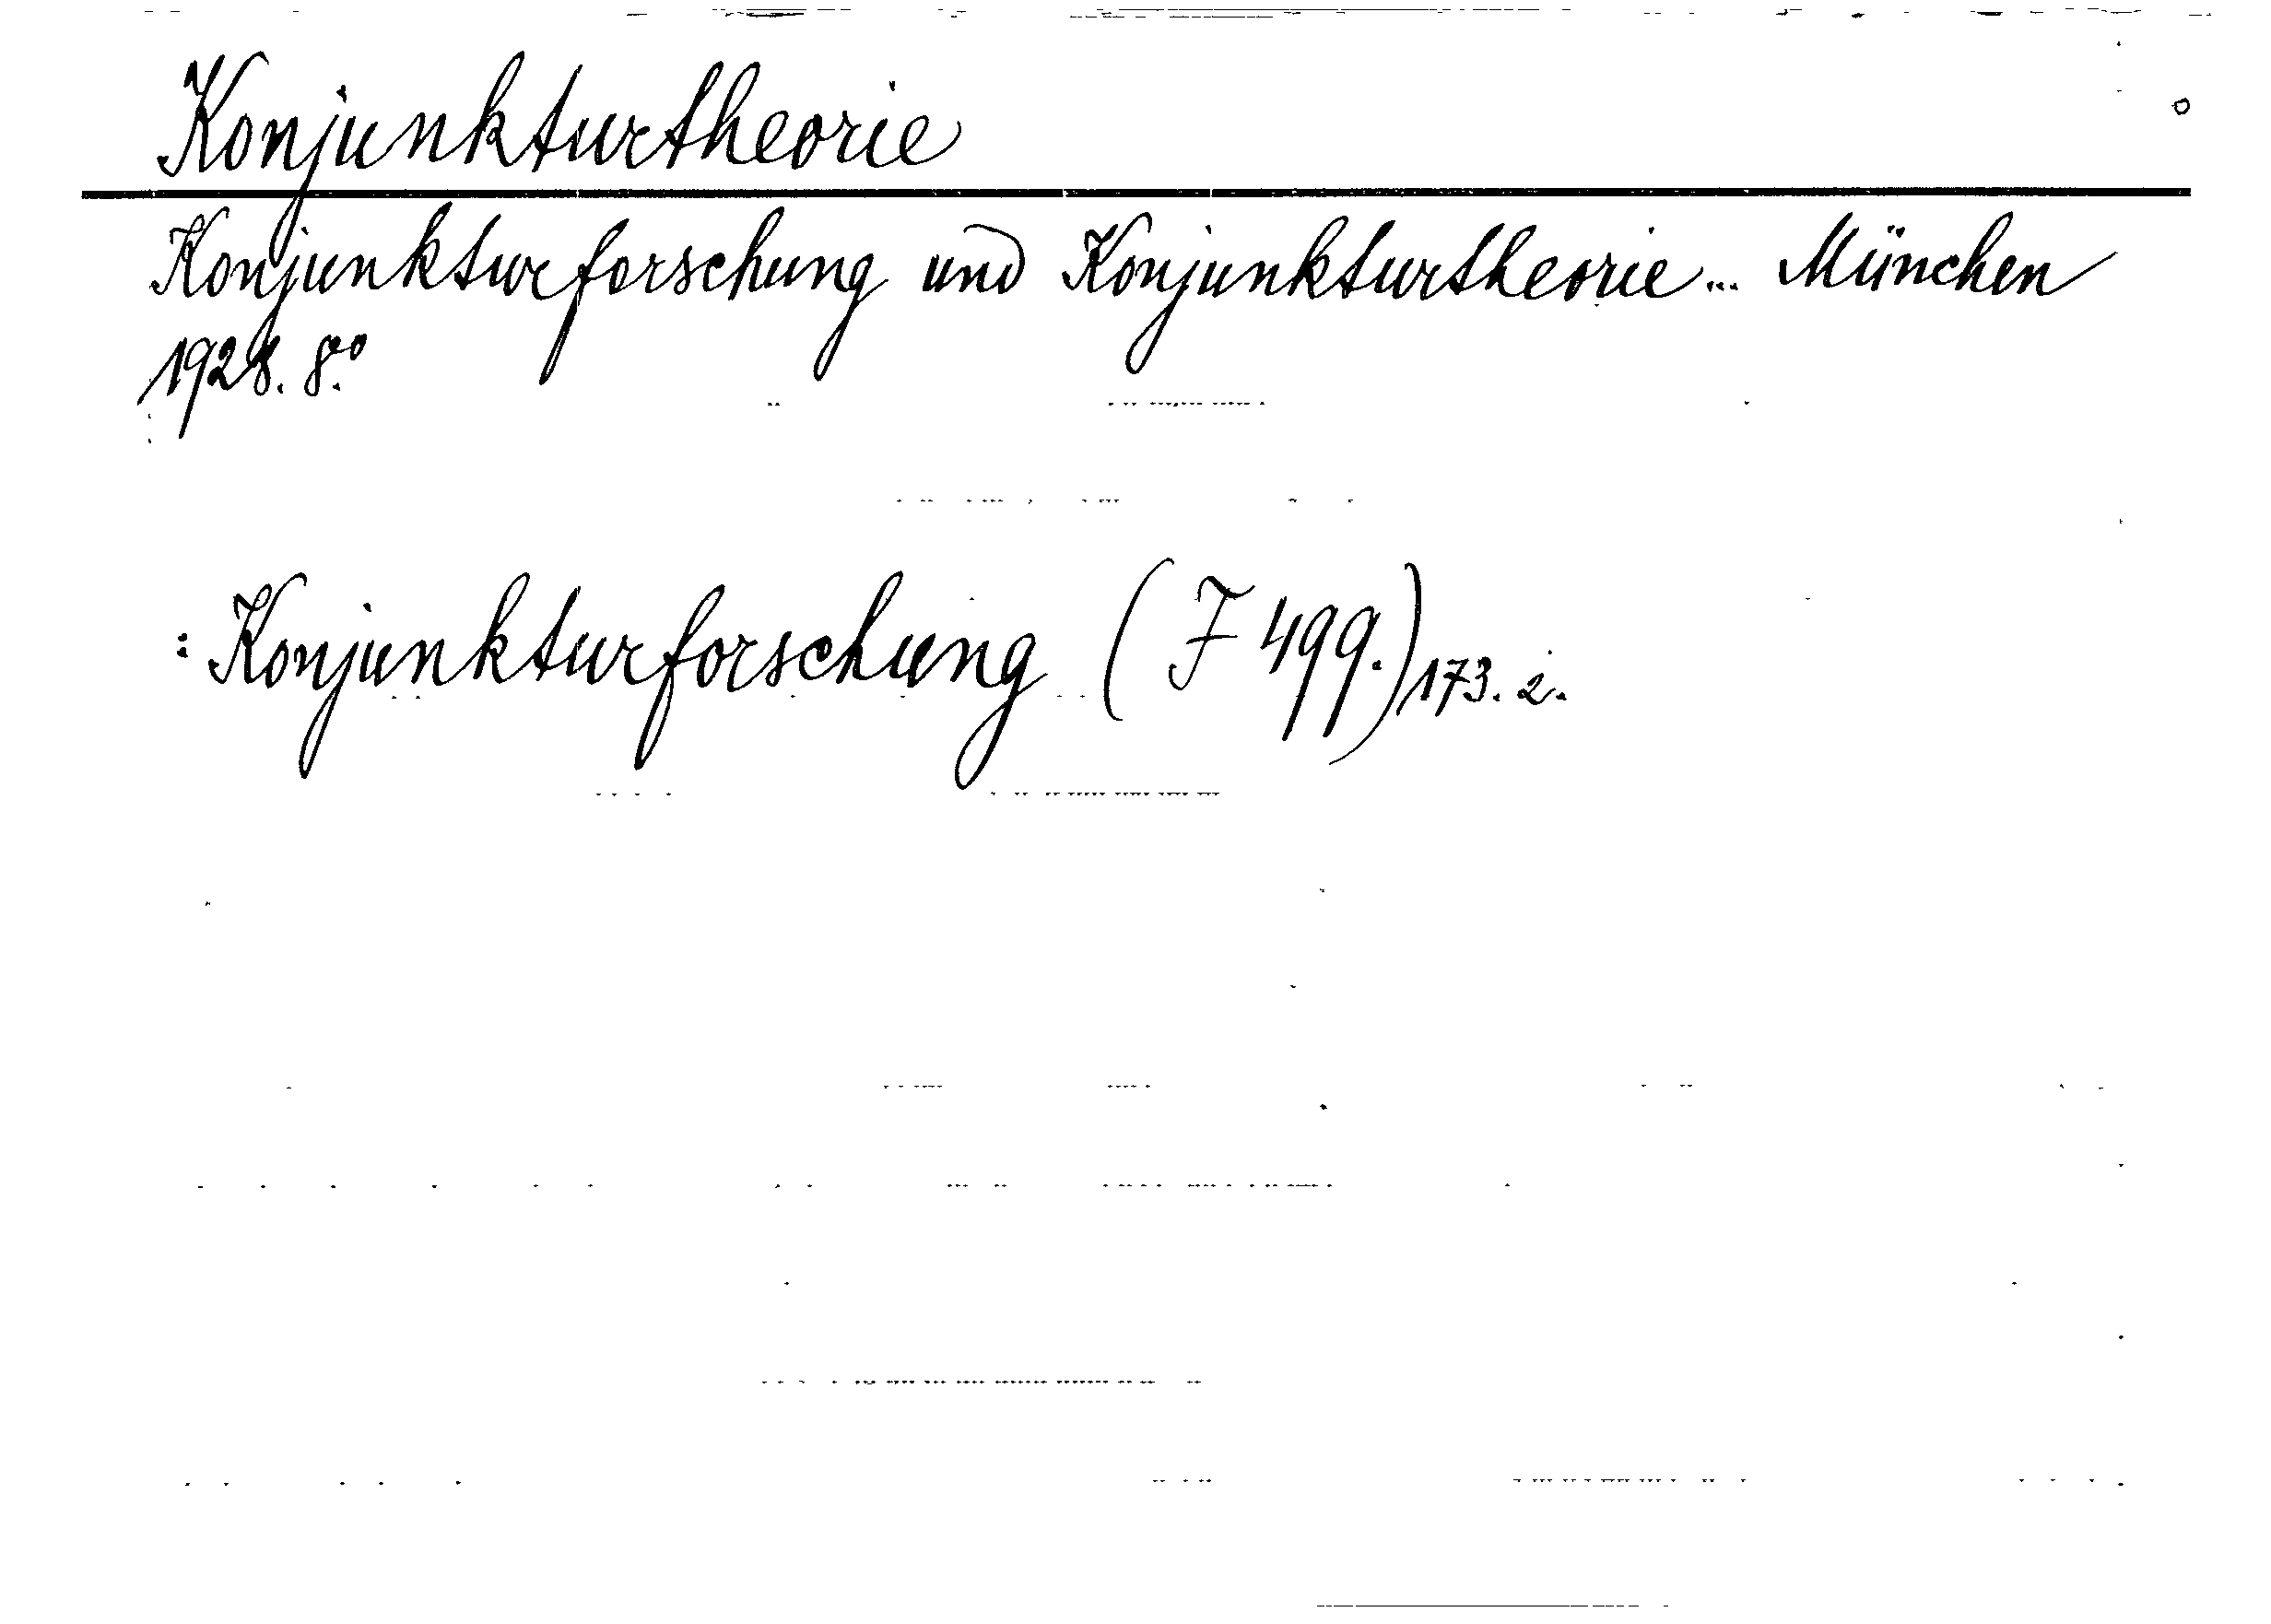 Konjunkturtheorie
Konjunkturforschung und Konjunkturtheorie... München
1928. 8.º
: Konjunkturforschung (F 499.) 173. i.